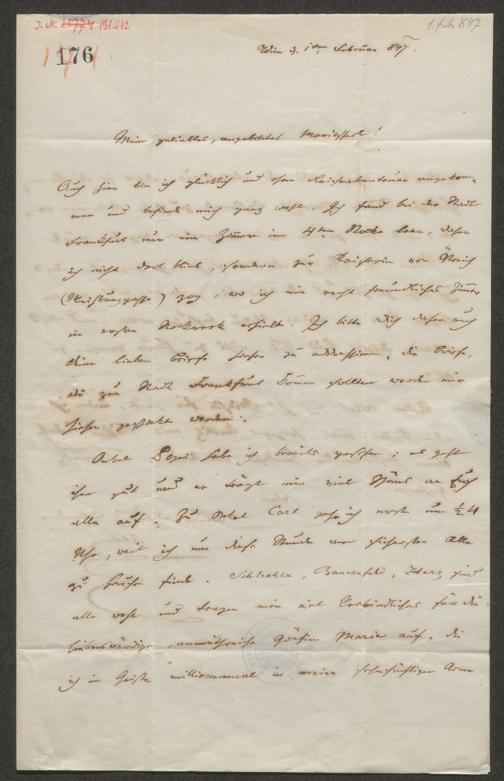 I. N. 131.242
1. Febr 847
176
Wien d. 1ten Februar 847.
Mein geliebtes, angebetetes Moritzherl!
Auch hier bin ich glücklich und ohne angekom-
men und befinde mich ganz wohl. Ich fand bei der Stadt
Frankfurt nur ein Zimmer im 4ten Stocke leer, daher
ich nicht dort blieb, sondern zur Kaiserin von Östreich
(Weihburggasse) zog, wo ich ein recht freundliches Zimmer
im ersten Stockwerk erhielt. Ich bitte Dich daher auch
Deine lieben Briefe hieher zu addressiren, die Briefe,
die zur Stadt Frankfurt kommen sollten werden mir
hieher geschickt werden.
Onkel Pepi habe ich bereits gesehen; es geht
ihm gut und er trägt mir viel Schönes an Euch
alle auf. Zu Onkel Carl gehe ich erst um ½ 4
Uhr, weil ich um diese Stunde am sichersten Alle
zu Hause finde. Schlechta, Bauernfeld, Herz sind
alle wohl und tragen mir viel Verbindliches für die
liebenswürdige, anmuthreiche Gräfin Marie auf, die
ich im Geiste millionenmal in meine sehnsüchtigen Arme